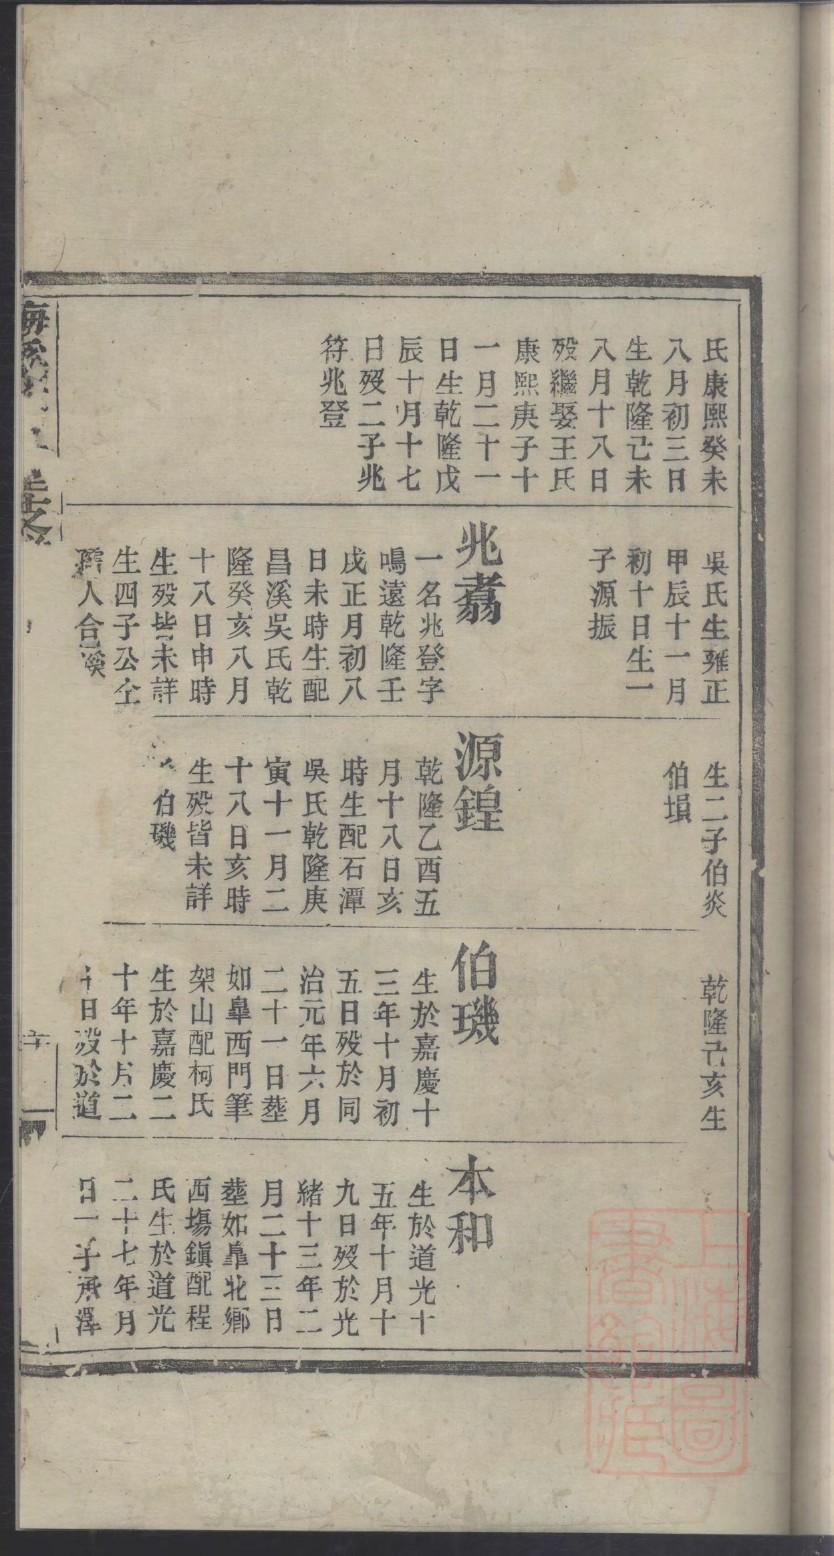 氏康熙癸未
八月初三日
生乾隆己未
八月十八日
歿繼娶王氏
康熙庚子十
一月二十一
日生乾隆戊
辰十月十七
日歿二子兆
符兆登
吳氏生雍正
甲辰十一月
初十日生一
子源振
兆翥
一名兆登字
鳴遠乾隆壬
戌正月初八
日未時生配
昌溪吳氏乾
隆癸亥八月
十八日申時
生歿皆未詳
生四子公仝
人合溪
生二子伯炎
伯塤
源鍠
乾隆乙酉五
月十八日亥
時生配石潭
吳氏乾隆庚
寅十一月二
十八日亥時
生歿皆未詳
伯璣
乾隆己亥生
伯璣
生於嘉慶十
三年十月初
五日歿於同
治元年六月
二十一日塟
如臯西門筆
架山配柯氏
生於嘉慶二
十年十月二
日歿於道
本和
生於道光十
五年十月十
九日歿於光
緒十三年二
月二十三日
塟如臯北鄉
西塲鎭配程
氏生於道光
二十七年月
日一子承澤
上海圖
書館藏